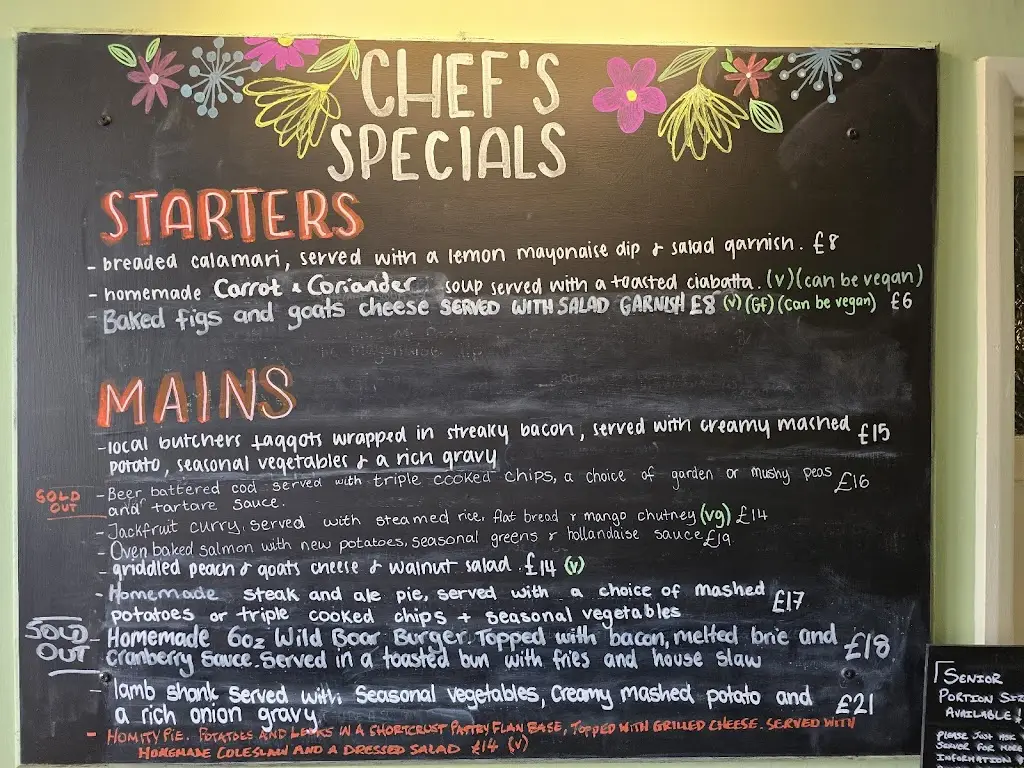 CHEF'S
SPECIALS
STARTERS
- breaded calamari, served with a lemon mayonaise dip & salad garnish. £8
- homemade Carrot & Coriander soup served with a toasted ciabatta. (v) (can be vegan)
- Baked figs and goats cheese SERVED WITH SALAD GARNISH £8 (v) (GF) (can be vegan) £6
MAINS
- local butchers faggots wrapped in streaky bacon, served with creamy mashed £15
potato, seasonal vegetables & a rich gravy
SOLD OUT
- Beer battered cod served with triple cooked chips, a choice of garden or mushy peas £16
and tartare sauce.
- Jackfruit curry, served with steamed rice, flat bread & mango chutney (vg) £14
- Oven baked salmon with new potatoes, seasonal greens & hollandaise sauce £19
- griddled peach & goats cheese & walnut salad. £14 (v)
- Homemade steak and ale pie, served with a choice of mashed £17
potatoes or triple cooked chips + seasonal vegetables
SOLD OUT
- Homemade 6oz Wild Boar Burger. Topped with bacon, melted brie and £18
Cranberry Sauce. Served in a toasted bun with fries and house slaw
- lamb shank served with, Seasonal vegetables, Creamy mashed potato and £21
a rich onion gravy
- HOMITY PIE. POTATOES AND LEEKS IN A SHORTCRUST PASTRY FLAN BASE, TOPPED WITH GRILLED CHEESE. SERVED WITH
HOMEMADE COLESLAW AND A DRESSED SALAD £14 (V)
SENIOR
PORTION
AVAILABLE!
PLEASE JUST ASK
SERVER FOR MORE
INFORMATION